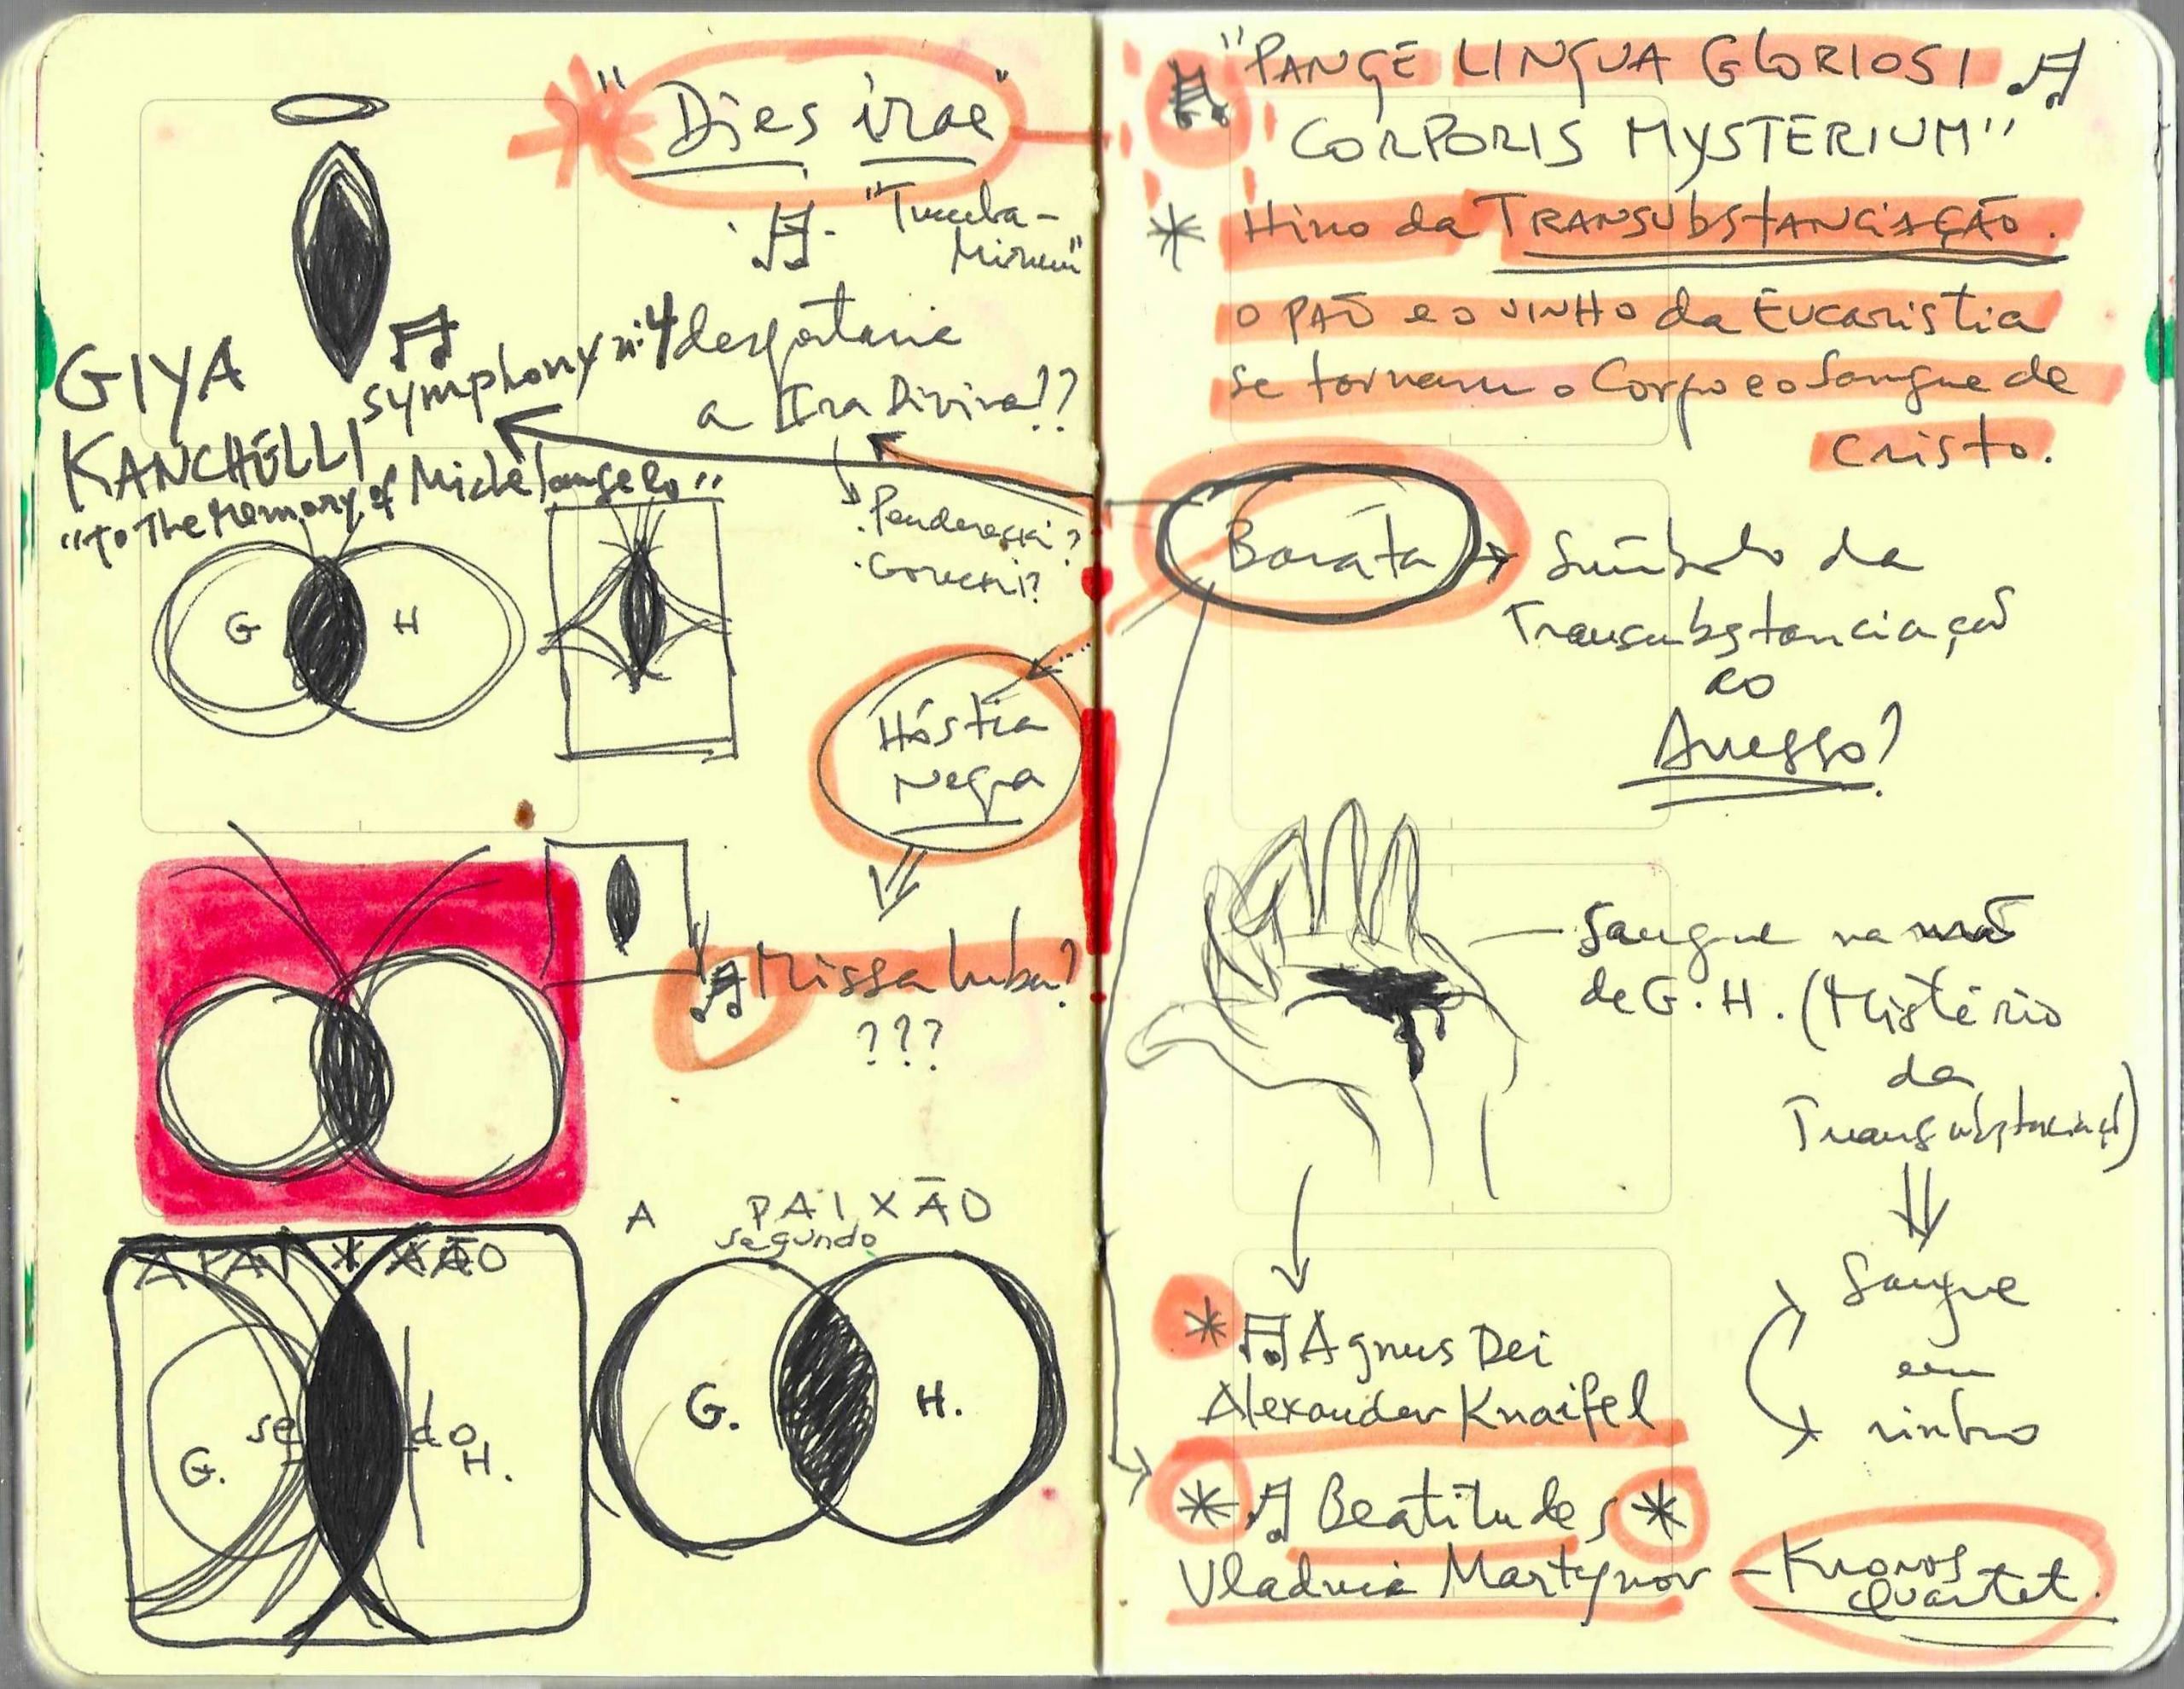 "Dies irae"
"Tuuba-
Mirum"
GIYA
KANCHELLI
Symphony nº 4
"to The Memory of Michelangelo"
despertaria
a Ira Divina??
. Penderecki?
. Gorecki?
G H
Hóstia
Negra
Missa Luba?
???
A PAIXÃO
segundo
G. H.
APAIXÃO
G. se do H.
"PANGE LINGUA GLORIOSI
CORPORIS MYSTERIUM"
* Hino da TRANSUBSTANCIAÇÃO.
O PÃO e o VINHO da Eucaristia
se tornam o Corpo e o Sangue de
Cristo.
Barata
Símbolo da
Transubstanciação
ao
Avesso?
Sangue na mão
de G.H. (Mistério
da
Transubstanciação)
Sangue
em
vinho
* Agnus Dei
Alexander Knaifel
* Beatitudes *
Vladimir Martynov - Kronos
Quartet.